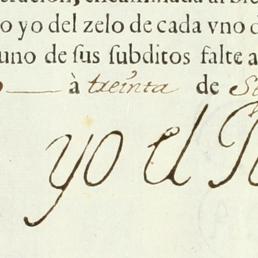 o yo del zelo de cada vno d
uno de sus subditos falte a
à treinta de Se
yo el R